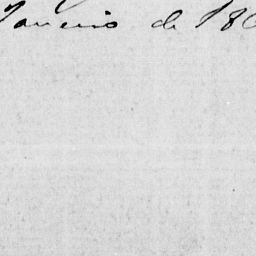 Janeiro de 186